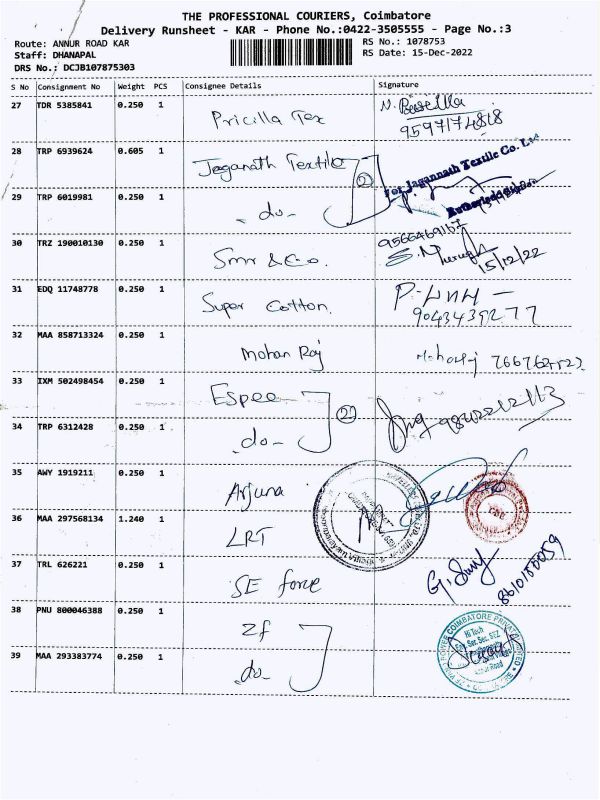 THE PROFESSIONAL COURIERS, Coimbatore
Delivery Runsheet - KAR - Phone No.:0422-3505555 - Page No.:3
Route: ANNUR ROAD KAR
RS No.: 1078753
Staff: DHANAPAL
RS Date: 15-Dec-2022
DRS No.: DCJB107875303
S No Consignment No Weight PCS Consignee Details Signature
27 TDR 5385841 0.250 1 Pricilla Tex
9597174818
28 TRP 6939624 0.605 1 Jaganath Textile
2 For Jagannath Textile Co. Ltd
29 TRP 6019981 0.250 1 - do -
30 TRZ 190010130 0.250 1 Smr & Co.
15/12/22
31 EDQ 11748778 0.250 1 Super Cotton.
9043439277
32 MAA 858713324 0.250 1 Mohan Raj
33 IXM 502498454 0.250 1 Espee
2
34 TRP 6312428 0.250 1 - do -
35 AWY 1919211 0.250 1 Arjuna
36 MAA 297568134 1.240 1 LRT
37 TRL 626221 0.250 1 SE force
38 PNU 800046388 0.250 1 Zf
Hi Tech
39 MAA 293383774 0.250 1 - do -